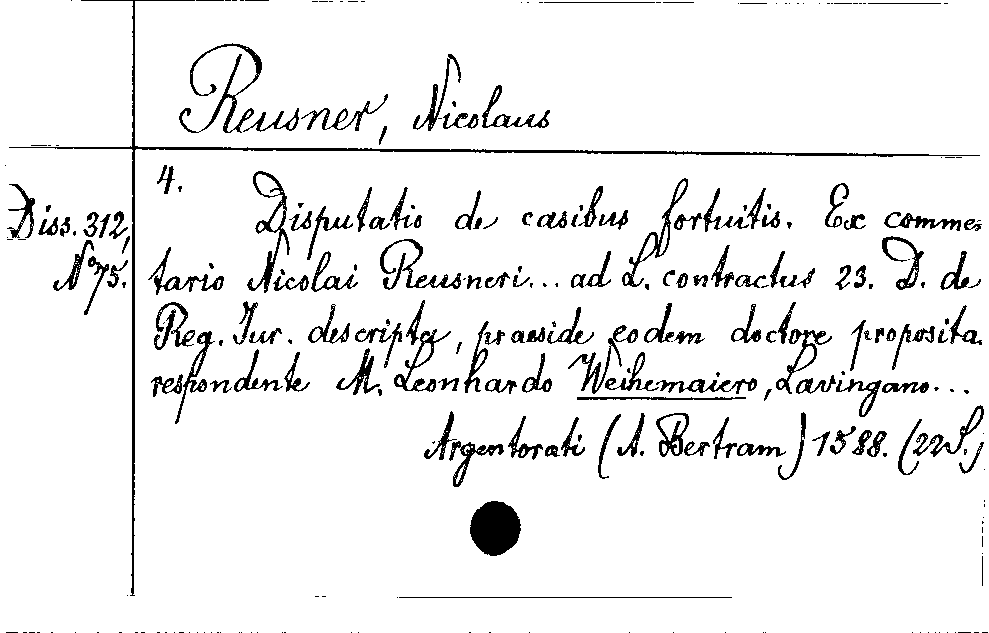 Reusner, Nicolaus
4.
Diss. 312,
No 75.
Disputatio de casibus fortuitis. Ex commen
tario Nicolai Reusneri... ad L. contractus 23. D. de
Reg. Jur. descripta, praeside eodem doctore proposita.
respondente M. Leonhardo Weihemaiero, Lavingano...
Argentorati (A. Bertram) 1588. (22 S.)